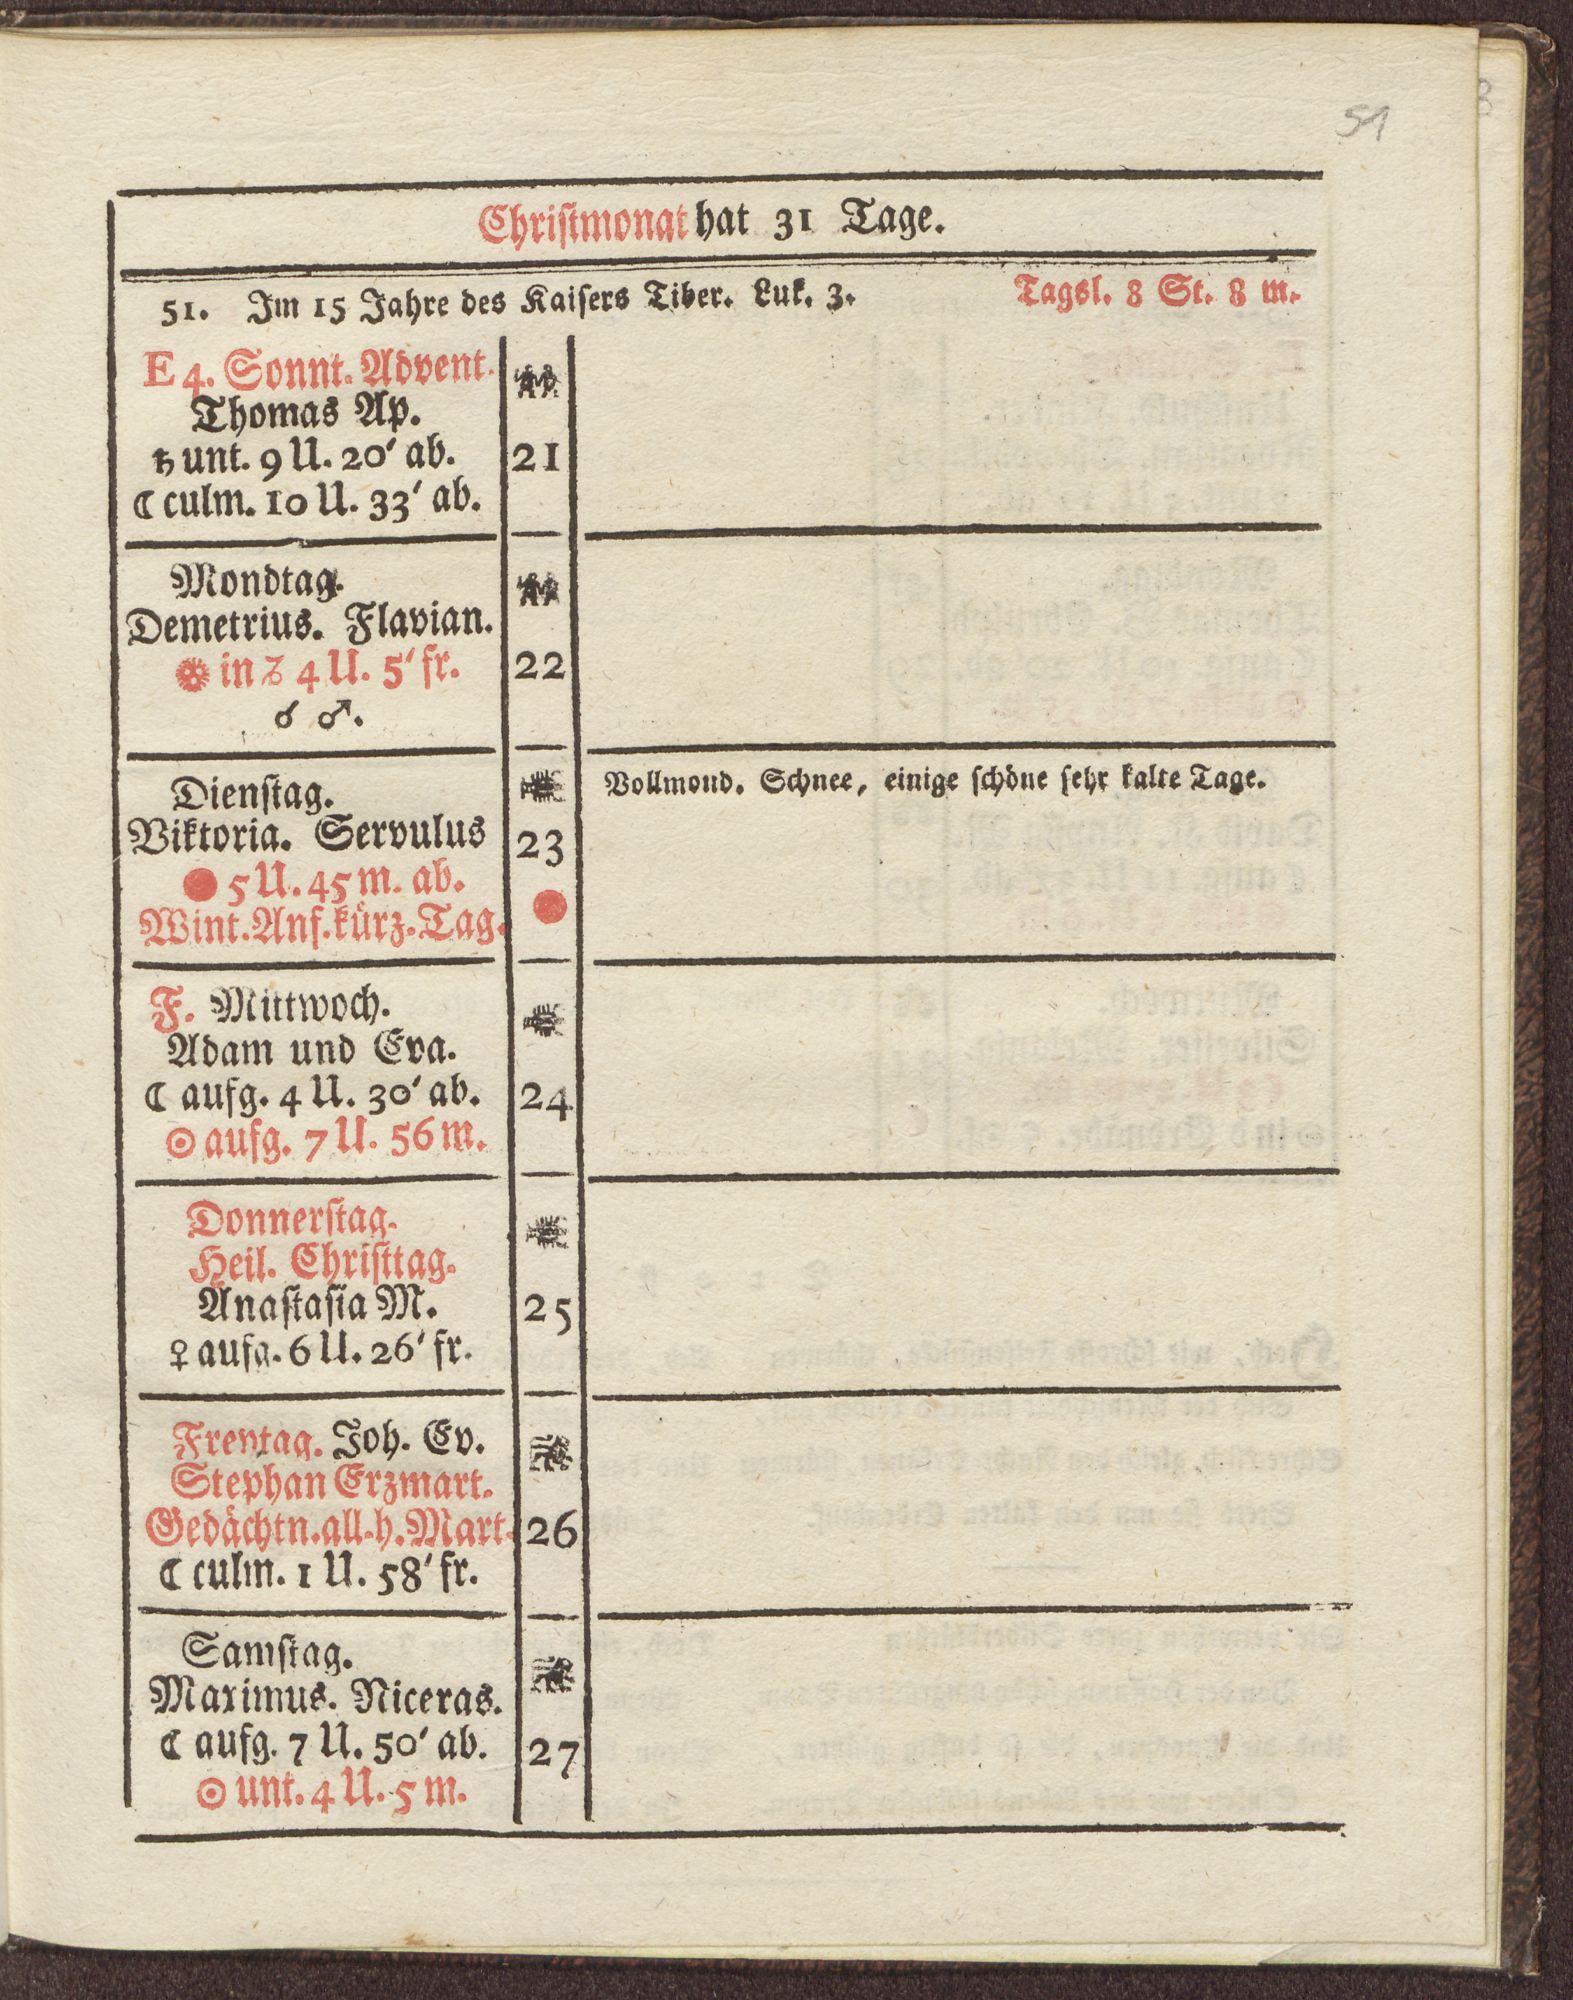 51
Christmonat hat 31 Tage.
51. Im 15 Jahre des Kaisers Tiber. Luk. 3. Tagsl. 8 St. 8 m.
E 4. Sonnt. Advent.
Thomas Ap.
♄ unt. 9 U. 20′ ab.
☾ culm. 10 U. 33′ ab.
21
Mondtag.
Demetrius. Flavian.
in ♑ 4 U. 5′ fr.
☌ ♂.
22
Dienstag.
Viktoria. Servulus
● 5 U. 45 m. ab.
Wint. Anf. kürz. Tag.
23
●
Vollmond. Schnee, einige schöne sehr kalte Tage.
F. Mittwoch.
Adam und Eva.
☾ aufg. 4 U. 30′ ab.
☉ aufg. 7 U. 56 m.
24
Donnerstag.
Heil. Christtag.
Anastasia M.
♀ aufg. 6 U. 26′ fr.
25
Freytag. Joh. Ev.
Stephan Erzmart.
Gedächtn. all. h. Mart.
☾ culm. 1 U. 58′ fr.
26
Samstag.
Maximus. Niceras.
☾ aufg. 7 U. 50′ ab.
☉ unt. 4 U. 5 m.
27